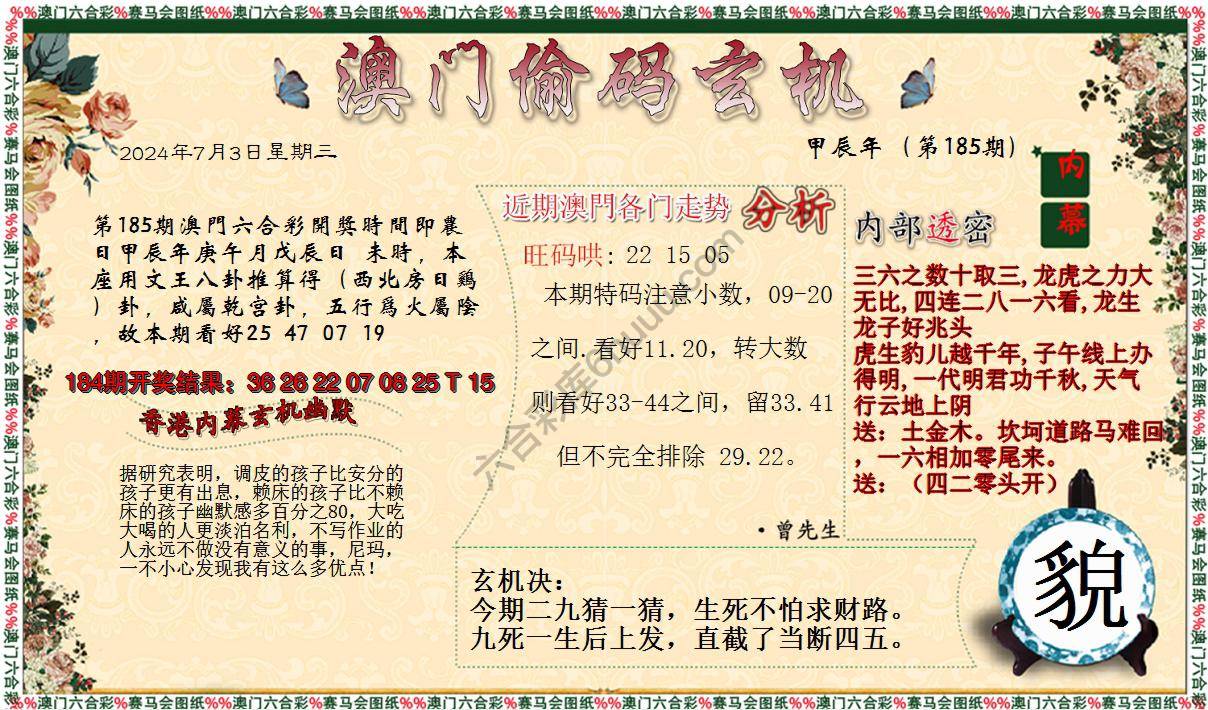 %%澳门六合彩%赛马会图纸%%澳门六合彩%赛马会图纸%%澳门六合彩%赛马会图纸%%澳门六合彩%赛马会图纸%%澳门六合彩%赛马会图纸%%澳门六合彩%赛马会图纸%%
澳门偷码玄机
2024年7月3日星期三
甲辰年（第185期）
第185期澳門六合彩開獎時間即農
日甲辰年庚午月戊辰日 未時，本
座用文王八卦推算得（西北房日鷄
）卦，咸屬乾宫卦，五行爲火屬陰
，故本期看好25 47 07 19
184期开奖结果：36 26 22 07 08 25 T 15
香港内幕玄机幽默
据研究表明，调皮的孩子比安分的
孩子更有出息，赖床的孩子比不赖
床的孩子幽默感多百分之80，大吃
大喝的人更淡泊名利，不写作业的
人永远不做没有意义的事，尼玛，
一不小心发现我有这么多优点！
近期澳門各门走势 分析
旺码哄：22 15 05
本期特码注意小数，09-20
之间.看好11.20，转大数
则看好33-44之间，留33.41
但不完全排除 29.22。
·曾先生
内幕
内部透密
三六之数十取三,龙虎之力大
无比,四连二八一六看,龙生
龙子好兆头
虎生豹儿越千年,子午线上办
得明,一代明君功千秋,天气
行云地上阴
送：土金木。坎坷道路马难回
，一六相加零尾来。
送：（四二零头开）
玄机决：
今期二九猜一猜，生死不怕求财路。
九死一生后上发，直截了当断四五。
貌
%%澳门六合彩%赛马会图纸%%澳门六合彩%赛马会图纸%%澳门六合彩%赛马会图纸%%澳门六合彩%赛马会图纸%%澳门六合彩%赛马会图纸%%澳门六合彩%赛马会图纸%%